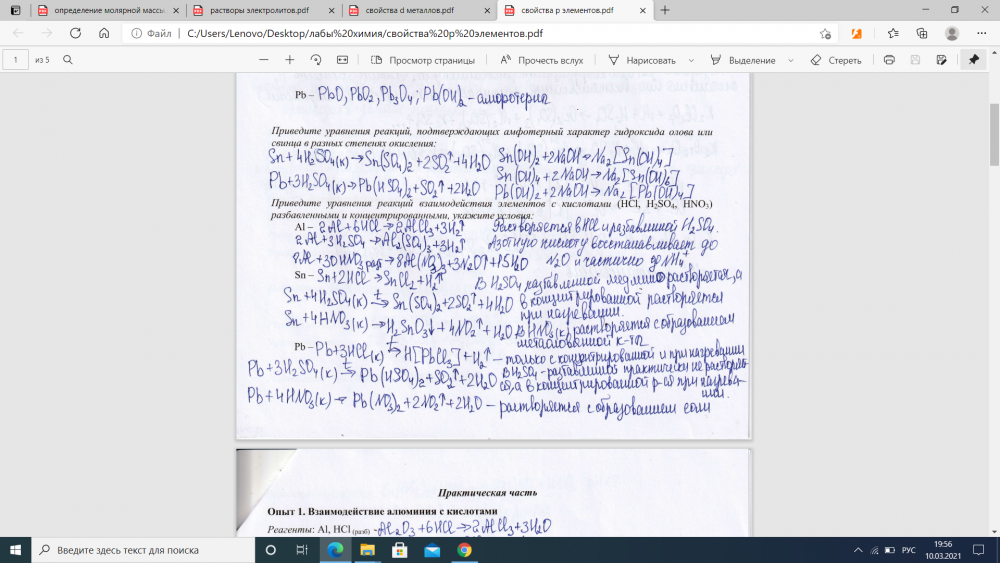 определение молярной массы.
растворы электролитов.pdf
свойства d металлов.pdf
свойства p элементов.pdf
Файл | C:/Users/Lenovo/Desktop/лабы%20химия/свойства%20p%20элементов.pdf
1 из 5 Просмотр страницы Прочесть вслух Нарисовать Выделение Стереть
Pb – PbO, PbO2, Pb3O4; Pb(OH)2 – амфотерна
Приведите уравнения реакций, подтверждающих амфотерный характер гидроксида олова или
свинца в разных степенях окисления:
Sn + 4H2SO4(к) → Sn(SO4)2 + 2SO2↑ + 4H2O Sn(OH)2 + 2NaOH → Na2[Sn(OH)4]
Sn(OH)4 + 2NaOH → Na2[Sn(OH)6]
Pb + 3H2SO4(к) → Pb(HSO4)2 + SO2↑ + 2H2O Pb(OH)2 + 2NaOH → Na2[Pb(OH)4]
Приведите уравнения реакций взаимодействия элементов с кислотами (HCl, H2SO4, HNO3)
разбавленными и концентрированными, укажите условия:
Al – 2Al + 6HCl → 2AlCl3 + 3H2↑ Растворяется в HCl и разбавленной H2SO4.
2Al + 3H2SO4 → Al2(SO4)3 + 3H2↑ Азотную кислоту восстанавливает до
8Al + 30HNO3 разб → 8Al(NO3)3 + 3N2O↑ + 15H2O N2O и частично до NH4+
Sn – Sn + 2HCl → SnCl2 + H2↑ В H2SO4 разбавленной медленно растворяется, а
Sn + 4H2SO4(к) t→ Sn(SO4)2 + 2SO2↑ + 4H2O в концентрированной растворяется
при нагревании.
Sn + 4HNO3(к) → H2SnO3↓ + 4NO2↑ + H2O В HNO3(к) растворяется с образованием
метаоловянной к-ты
Pb – Pb + 3HCl(к) t→ H[PbCl3] + H2↑ – только с концентрированной и при нагревании
Pb + 3H2SO4(к) t→ Pb(HSO4)2 + SO2↑ + 2H2O В H2SO4 – разбавленной практически не растворяет
ся, а в концентрированной р-ся при нагрева-
нии.
Pb + 4HNO3(к) → Pb(NO3)2 + 2NO2↑ + 2H2O – растворяется с образованием соли
Практическая часть
Опыт 1. Взаимодействие алюминия с кислотами
Реагенты: Al, HCl (разб) - Al2O3 + 6HCl → 2AlCl3 + 3H2O
Введите здесь текст для поиска
РУС
19:56
10.03.2021